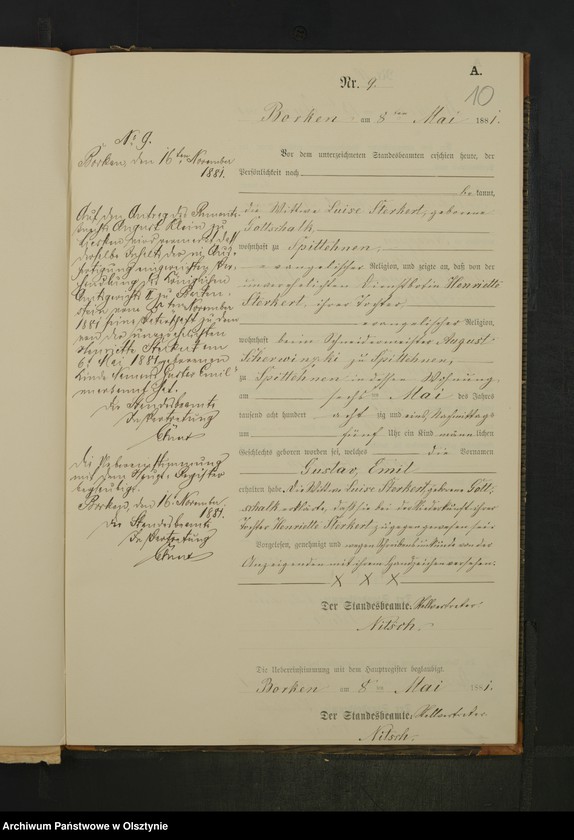 A.
10
Nr. 9.
Borken am 8ten Mai 1881.
Vor dem unterzeichneten Standesbeamten erschien heute, der
Persönlichkeit nach
bekannt,
die Wittwe Luise Sterkert, geborene
Gottschalk,
wohnhaft zu Spittehnen,
evangelischer Religion, und zeigte an, daß von der
unverehelichten Dienstbotin Henriette
Sterkert, ihrer Tochter
evangelischer Religion,
wohnhaft beim Schneidermeister August
zu Spittehnen,
zu Spittehnen in dessen Wohnung,
am sechsten Mai des Jahres
tausend acht hundert achtzig und eins, Nachmittags
um fünf Uhr ein Kind männlichen
Geschlechts geboren worden sei, welches die Vornamen
Gustav, Emil
erhalten habe. Die Wittwe Luise Sterkert, geborene Gott-
schalk erklärte, daß sie bei der Niederkunft ihrer
Tochter Henriette Sterkert zugegen gewesen sei.
Vorgelesen, genehmigt und wegen Schreibensunkunde von der
Anzeigenden mit ihrem Handzeichen versehen.
X X X
Der Standesbeamte. Stellvertreter.
Nitsch.
Die Uebereinstimmung mit dem Hauptregister beglaubigt.
Borken am 8ten Mai 1881.
Der Standesbeamte. Stellvertreter
Nitsch.
No 9.
Borken, den 16ten November
1881.
Auf den Antrag des
August Klein zu
wird vermerkt daß
derselbe in Aus-
fertigung
handlung des Königlichen
Amtsgerichts II zu Barten-
stein vom November
1881 seine Vaterschaft zu dem
von der unverehelichten
Henriette Sterkert am
6t Mai 1881 geborenen
Kinde Namens "Gustav Emil"
anerkannt hat.
Der Standesbeamte
In Vertretung
Die Uebereinstimmung
mit dem Haupt-Register
beglaubigt.
Borken, den 16. Novembr.
1881.
Der Standesbeamte
In Vertretung
Archiwum Państwowe w Olsztynie